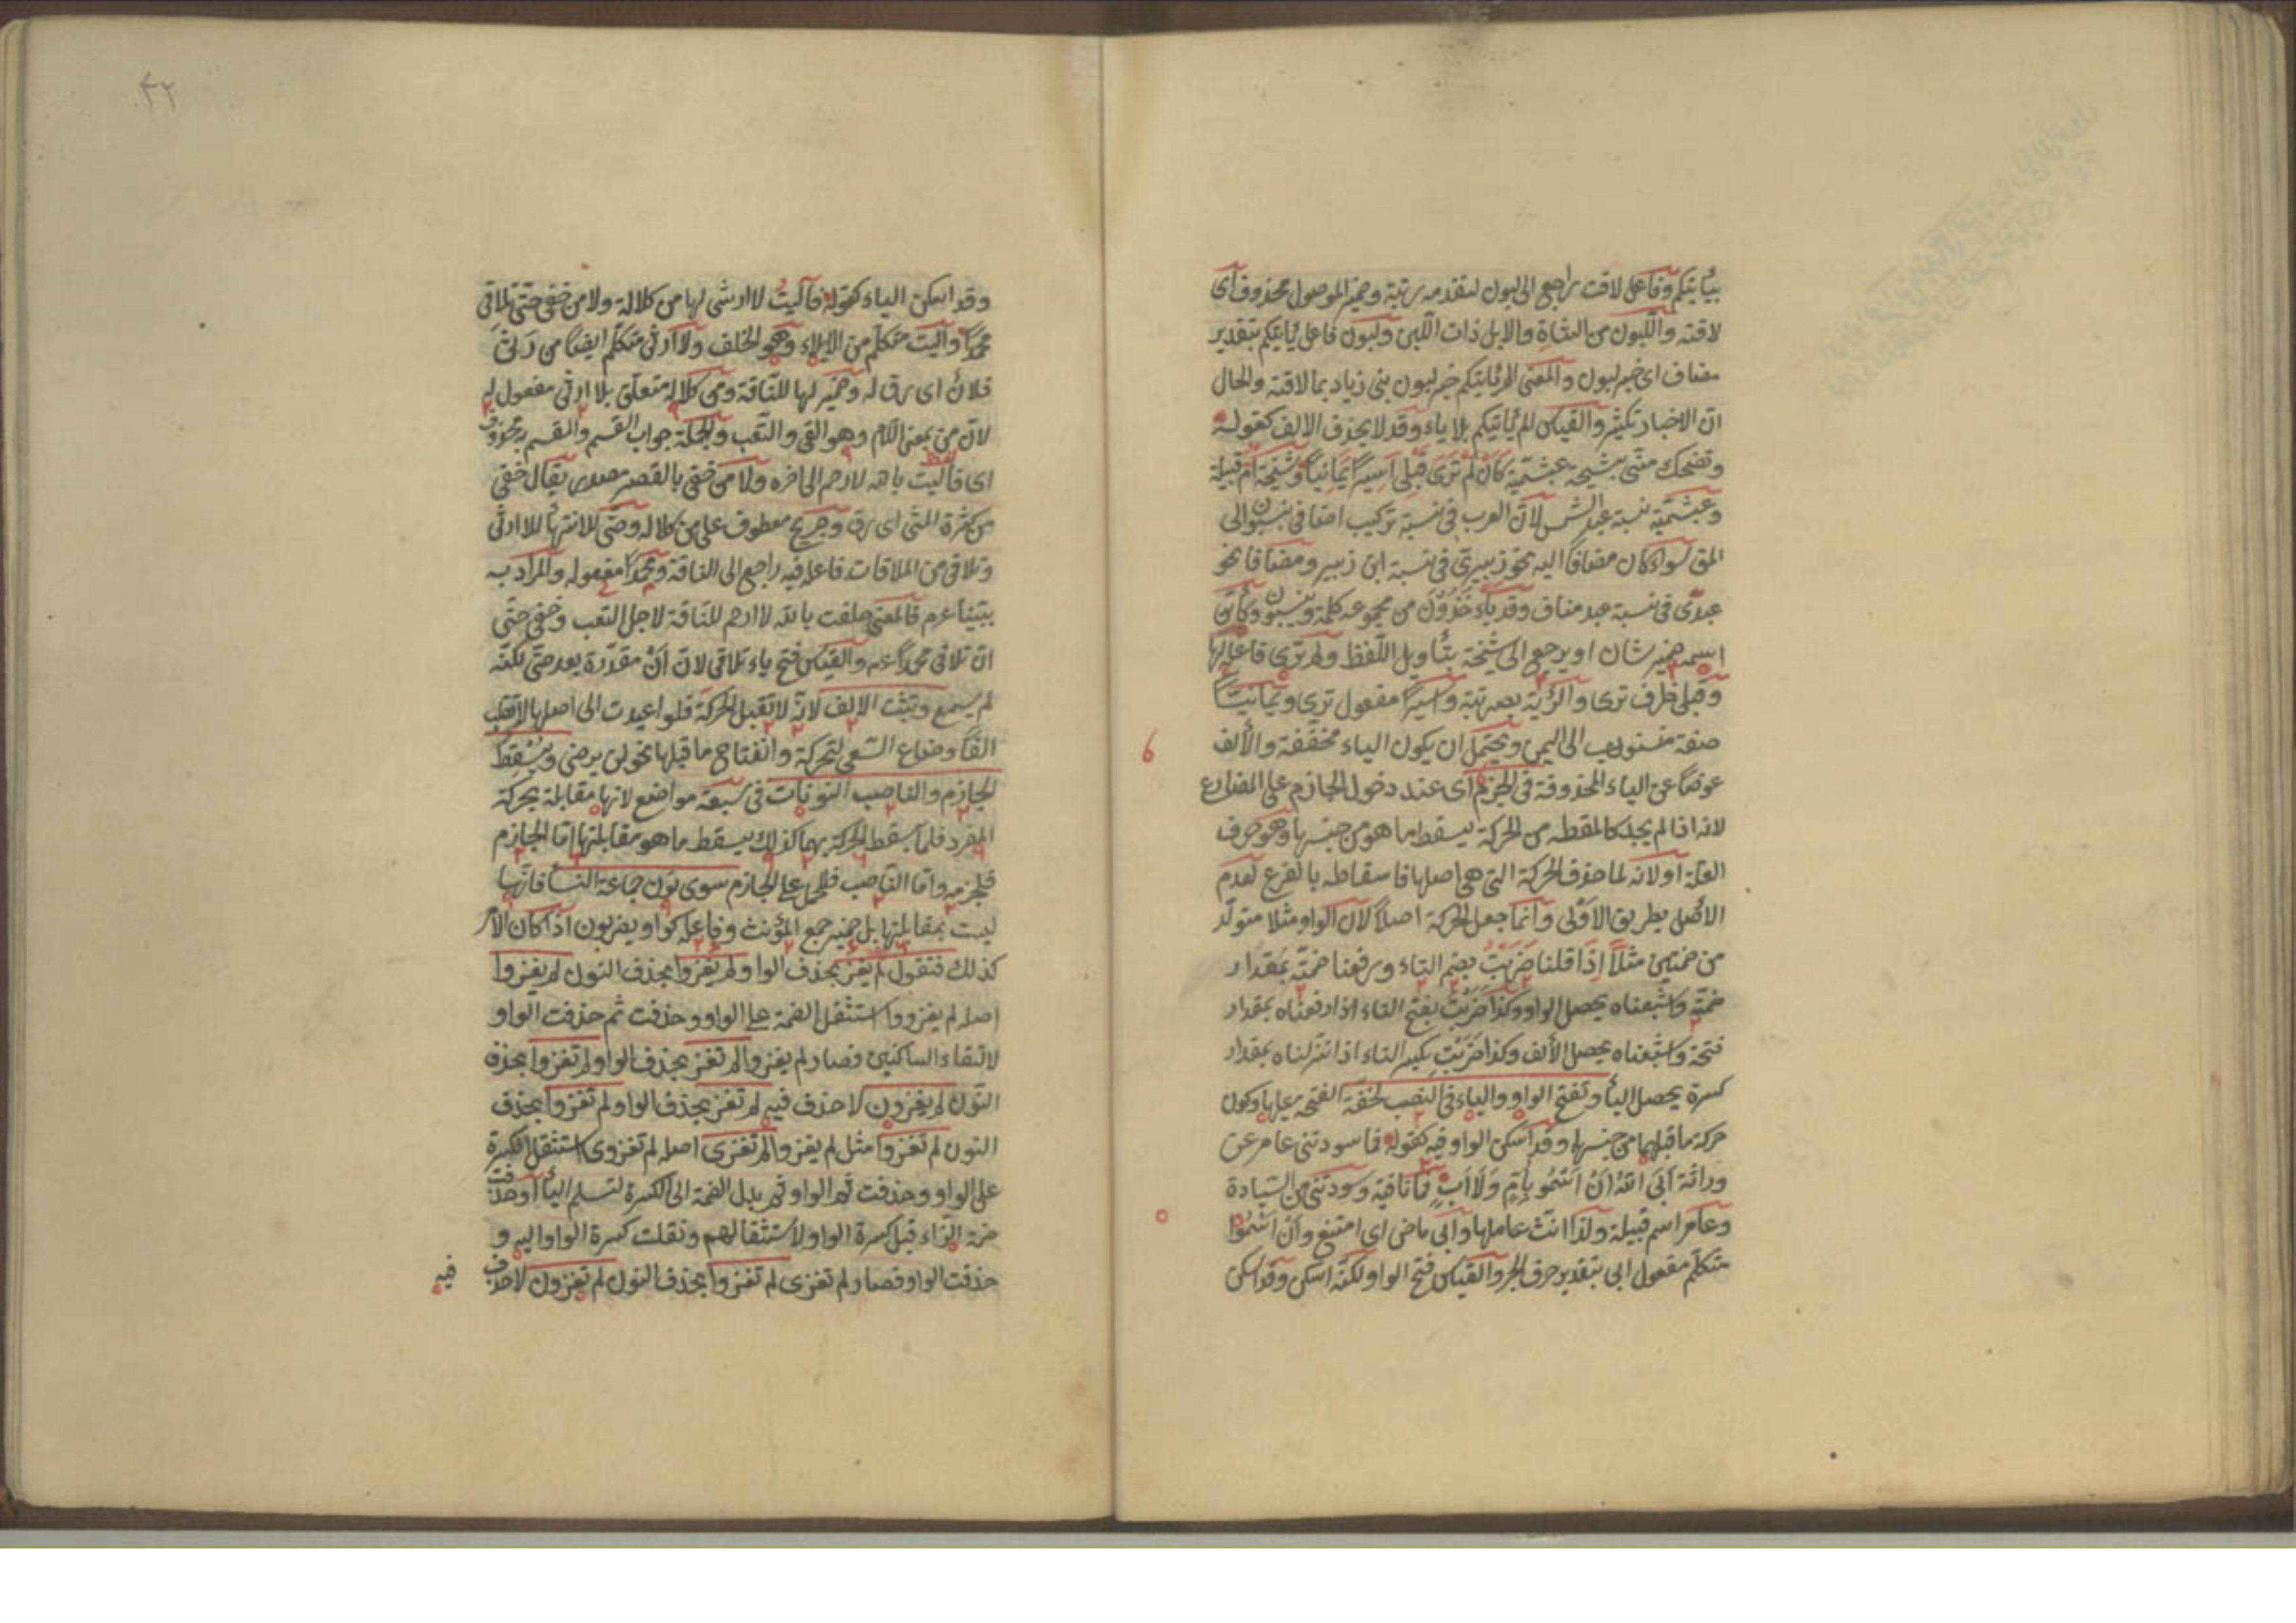 بيأتيكم وفاعل لاقت راجع الى لبون لتقدمه رتبة وضمير الموصول محذوف اى
لاقته واللبون من الشاة والابل ذات اللبن ولبون فاعل يأتيكم بتقدير
مضاف اى خبر لبون والمعنى الم يأتيكم خبر لبون بنى زياد بما لاقته والحال
ان الاخبار تكثر والقياس الم يأتيكم بلا ياء وقد لا يحذف الالف كقوله
وتضحك منى شيخة عبشمية كَأَنْ لَمْ تَرَى قَبْلِى اَسِيرًا يَمَانِيًا وشيخة ام قبيلة
وعبشمية نسبة عبد الشمس لان العرب فى نسبة تركيب اضافى ينسبون الى
المق سواء كان مضافا اليه نحو زبيرى فى نسبة ابن زبير ومضافا نحو
عبدى فى نسبة عبد مناف وقد يأخذون من مجموعه كلمة وينسبون وكأن
اسمه ضمير شان او يرجع الى شيخة بتأويل اللفظ ولم ترى فاعل لها
وقبلى ظرف ترى والرؤية بصرية واسيرا مفعول ترى ويمانيا
صفة منسوب الى اليمن ويحتمل ان يكون الياء مخففة والألف
عوضا عن الياء المحذوفة فى الجزم اى عند دخول الجازم على المضارع
لانه اذا لم يجد المقطه من الحركة يسقط ما هو من جنسها وهو حرف
العلة او لانه لما حذف الحركة التى هى اصلها فاسقاطه بالفرع لعدم
الاصل بطريق الاولى وانما جعل الحركة اصلا لان الواو مثلا متولد
من ضمتين مثلا اذا قلنا ضَرَبْتُ بضم التاء ورفعنا ضمته بمقدار
ضمة واشبعناه يحصل الواو وكذا ضربتَ بفتح التاء اذا رفعناه بمقدار
فتحة واشبعناه يحصل الألف وكذا ضَرَبْتِ بكسر التاء اذا نزلناه بمقدار
كسرة يحصل اليأ وتفتح الواو والياء فى النصب لخفة الفتحة عليها وكون
حركة ما قبلهما من جنسها وقد اسكن الواو فيه كقوله فما سودتنى عامر عن
وراثة اَبَى اللّٰهُ اَنْ اَسْمُو بِاُمٍّ وَلَا اَبٍ فما نافية وسودتنى من السيادة
وعامر اسم قبيلة ولذا انث عاملها وابى ماضى اى امتنع وان اسموا
متكلم مفعول ابى بتقدير حرف الجر والقياس فتح الواو لكنه اسكن وقد اسكن
٤٢
وقد اسكن الياء كقوله فآليتُ لا ارثى لها من كلالة ولا من خفى حتى تلاقى
محمدا وآليت متكلم من الايلاء وهو الحلف ولا ارثى متكلم ايضا من رثى
فلان اى رق له وضمير لها للناقة ومن كلالة متعلق بلا ارثى مفعول له
لان من بمعنى اللام وهو العى والتعب والجملة جواب القسم والقسم محذوف
اى فآليت بالله لا ارحم الى اخره ولا من خفى بالقصر مصدر يقال خفى
من كثرة المشى اى رق وجريح معطوف على من كلالة وحتى للانتهاء للا ارثى
وتلاقى من الملاقات فاعله فيه راجع الى الناقة ومحمدا مفعوله والمراد به
نبينا عم فالمعنى حلفت بالله لا ارحم للناقة لاجل التعب وخفى حتى
ان تلاقى محمدا عم والقياس فتح ياء تلاقى لان اَنْ مقدرة بعد حتى لكنه
لم يسمع وتثبت الالف لانه لا تقبل الحركة فلو اعيدت الى اصلها لانقلب
الفا وضاع السعى لتحركه وانفتاح ما قبلها نحو لن يرضى ويُسْقِط
الجازم والناصب النونات فى سبعة مواضع لانها مقابلة بحركة
المفرد فلما سقط الحركة بهما كذلك يسقط ما هو مقابلتها اما الجازم
فلجزمه واما الناصب فللحمل على الجازم سوى نون جماعة النسأ فانها
ليست بمقابلتها بل ضمير جمع المؤنث وفاعله كواو يضربون اذا كان الامر
كذلك فتقول لم يغز بحذف الواو ولم يغزوا بحذف النون لم يغزوا
اصله لم يغزووا استثقل الضمة على الواو وحذفت ثم حذفت الواو
لالتقاء الساكنين فصار لم يغزوا لم تغز بحذف الواو لم تغزوا بحذف
النون لم يغزون لا حذف فيه لم تغز بحذف الواو لم تغزوا بحذف
النون لم تغزوا مثل لم يغزوا لم تغزى اصله لم تغزوى استثقل الكسرة
على الواو وحذفت ثم الواو ثم بدل الضمة الى الكسرة لتسلم اليأ او حذفت
ضمة الزاء قبل كسرة الواو لاستثقالهم ونقلت كسرة الواو اليه و
حذفت الواو فصار لم تغزى لم تغزوا بحذف النون لم تغزون لا حذف
فيه